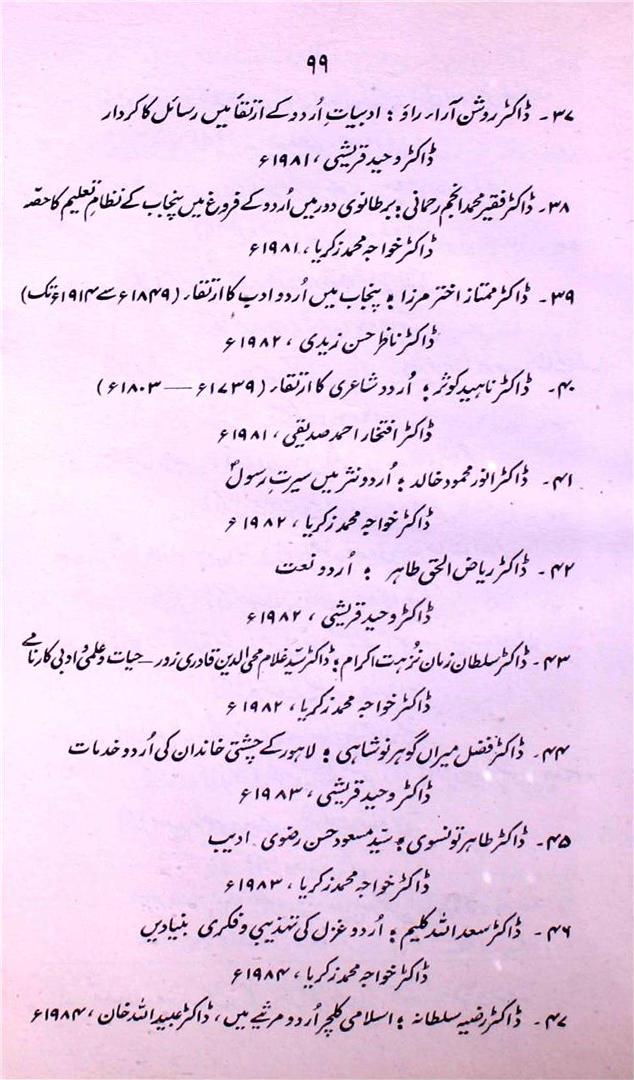 ۹۹
۳۷۔ ڈاکٹر روشن آراء راؤ ؛ ادبیاتِ اُردو کے ارتقأ میں رسائل کا کردار
ڈاکٹر وحید قریشی ، ۱۹۸۱ء
۳۸۔ ڈاکٹر فقیر محمد انجم رحمانی ؛ برطانوی دور میں اُردو کے فروغ میں پنجاب کے نظامِ تعلیم کا حصّہ
ڈاکٹر خواجہ محمد زکریا ، ۱۹۸۱ء
۳۹۔ ڈاکٹر ممتاز اختر مرزا ؛ پنجاب میں اُردو ادب کا ارتقاء (۱۸۴۹ء سے ۱۹۱۴ء تک)
ڈاکٹر ناظر حسن زیدی ، ۱۹۸۲ء
۴۰۔ ڈاکٹر ناہید کوثر ؛ اُردو شاعری کا ارتقاء (۱۷۳۹ء — ۱۸۰۳ء)
ڈاکٹر افتخار احمد صدیقی ، ۱۹۸۱ء
۴۱۔ ڈاکٹر انور محمود خالد ؛ اُردو نثر میں سیرتِ رسولؐ
ڈاکٹر خواجہ محمد زکریا ، ۱۹۸۲ء
۴۲۔ ڈاکٹر ریاض الحق طاہر ؛ اُردو نعت
ڈاکٹر وحید قریشی ، ۱۹۸۲ء
۴۳۔ ڈاکٹر سلطان زمان نزہت اکرام ؛ ڈاکٹر سیّد غلام محی الدین قادری زور – حیات و علمی و ادبی کارنامے
ڈاکٹر خواجہ محمد زکریا ، ۱۹۸۲ء
۴۴۔ ڈاکٹر فضل میراں گوہر نوشاہی ؛ لاہور کے چشتی خاندان کی اُردو خدمات
ڈاکٹر وحید قریشی ، ۱۹۸۳ء
۴۵۔ ڈاکٹر طاہر تونسوی ؛ سیّد مسعود حسن رضوی ۔ ادیب
ڈاکٹر خواجہ محمد زکریا ، ۱۹۸۳ء
۴۶۔ ڈاکٹر سعد اللہ کلیم ؛ اُردو غزل کی تہذیبی و فکری بنیادیں
ڈاکٹر خواجہ محمد زکریا ، ۱۹۸۴ء
۴۷۔ ڈاکٹر رضیہ سلطانہ ؛ اسلامی کلچر اُردو مرثیے میں ، ڈاکٹر عبید اللہ خان ، ۱۹۸۴ء